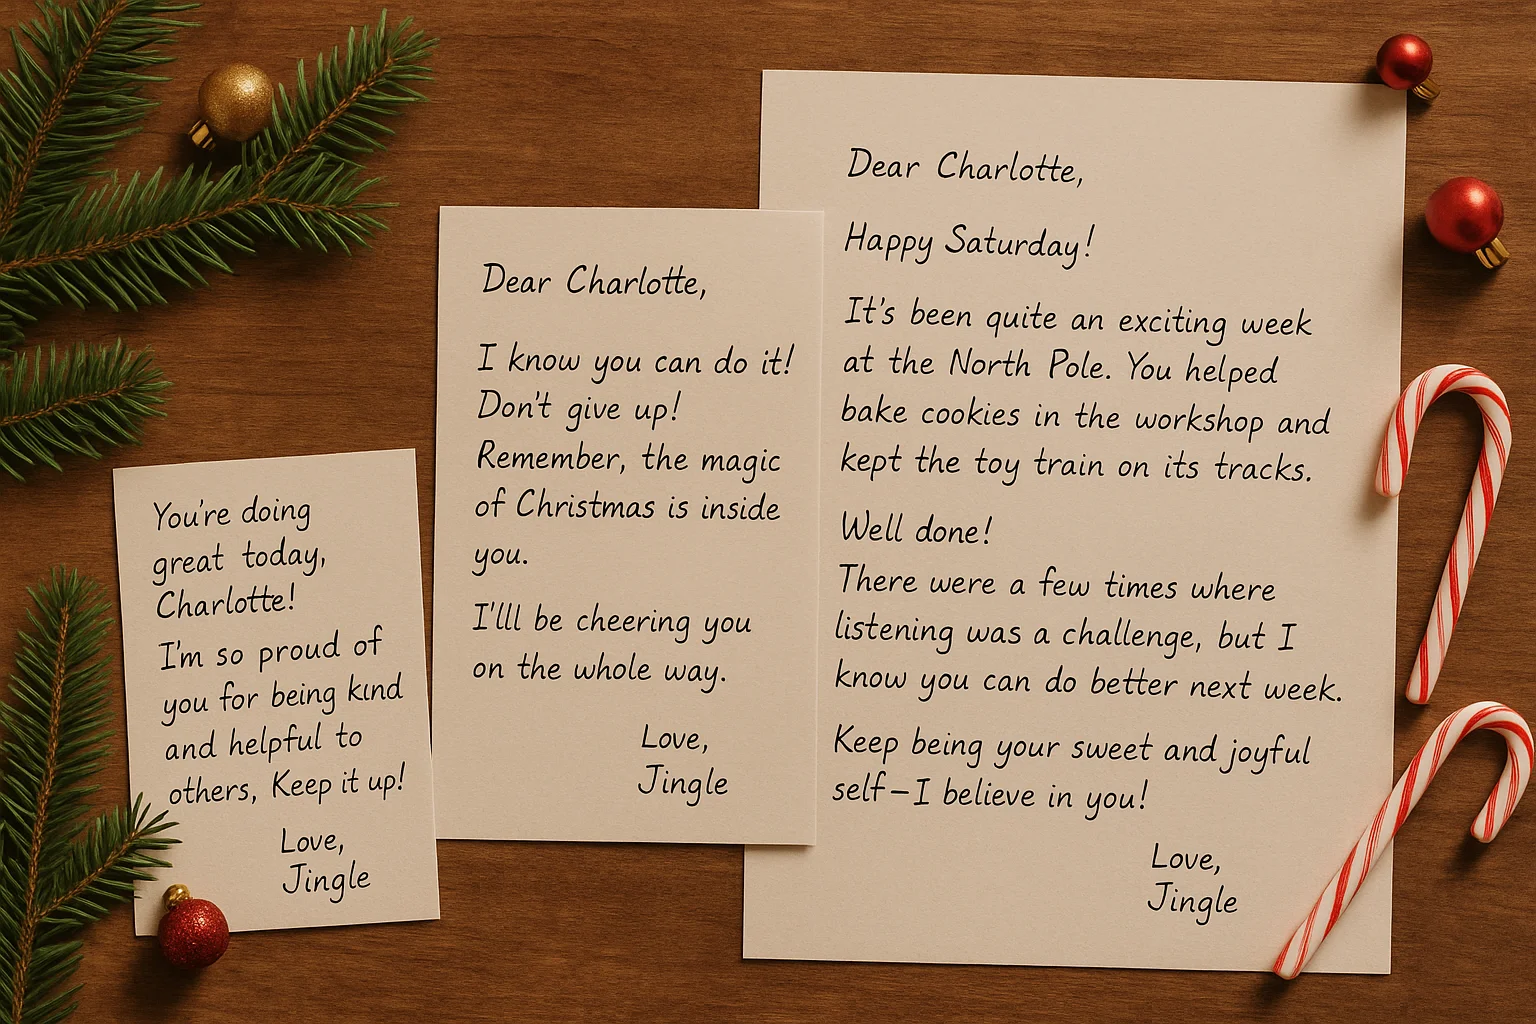 You're doing
great today,
Charlotte!
I'm so proud of
you for being kind
and helpful to
others, Keep it up!
Love,
Jingle
Dear Charlotte,
I know you can do it!
Don't give up!
Remember, the magic
of Christmas is inside
you.
I'lll be cheering you
on the whole way.
Love,
Jingle
Dear Charlotte,
Happy Saturday!
It's been quite an exciting week
at the North Pole. You helped
bake cookies in the workshop and
kept the toy train on its tracks.
Well done!
There were a few times where
listening was a challenge, but I
know you can do better next week.
Keep being your sweet and joyful
self–I believe in you!
Love,
Jingle